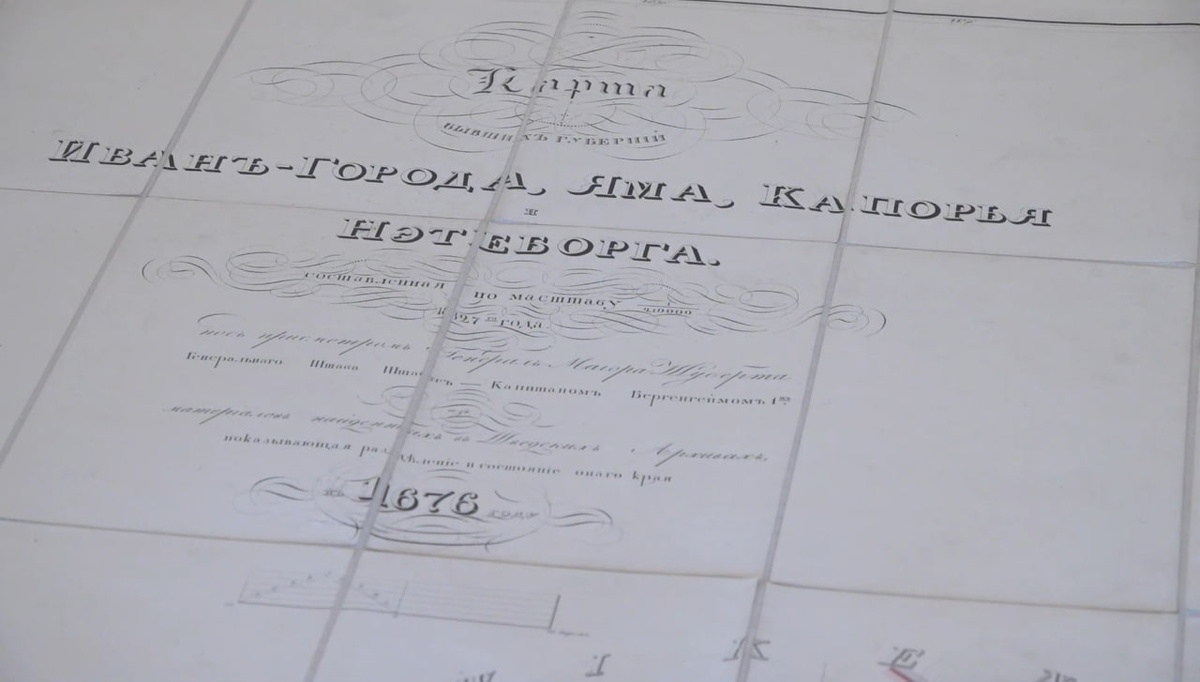 Карта
БЫВШИХЪ ГУБЕРНІЙ
ИВАНЪ-ГОРОДА, ЯМА, КАПОРЬЯ
и
НЭТЕБОРГА.
составленная по масштабу 1/210000
1827го года
подъ присмотромъ Генералъ Маіора Шуберта
Генеральнаго Штаба Штабсъ — Капитаномъ Бергенгеймомъ 1мъ
изъ
матеріаловъ найденныхъ въ Шведскихъ Архивахъ
показывающая раздѣленіе и состояніе онаго края
въ 1676 году